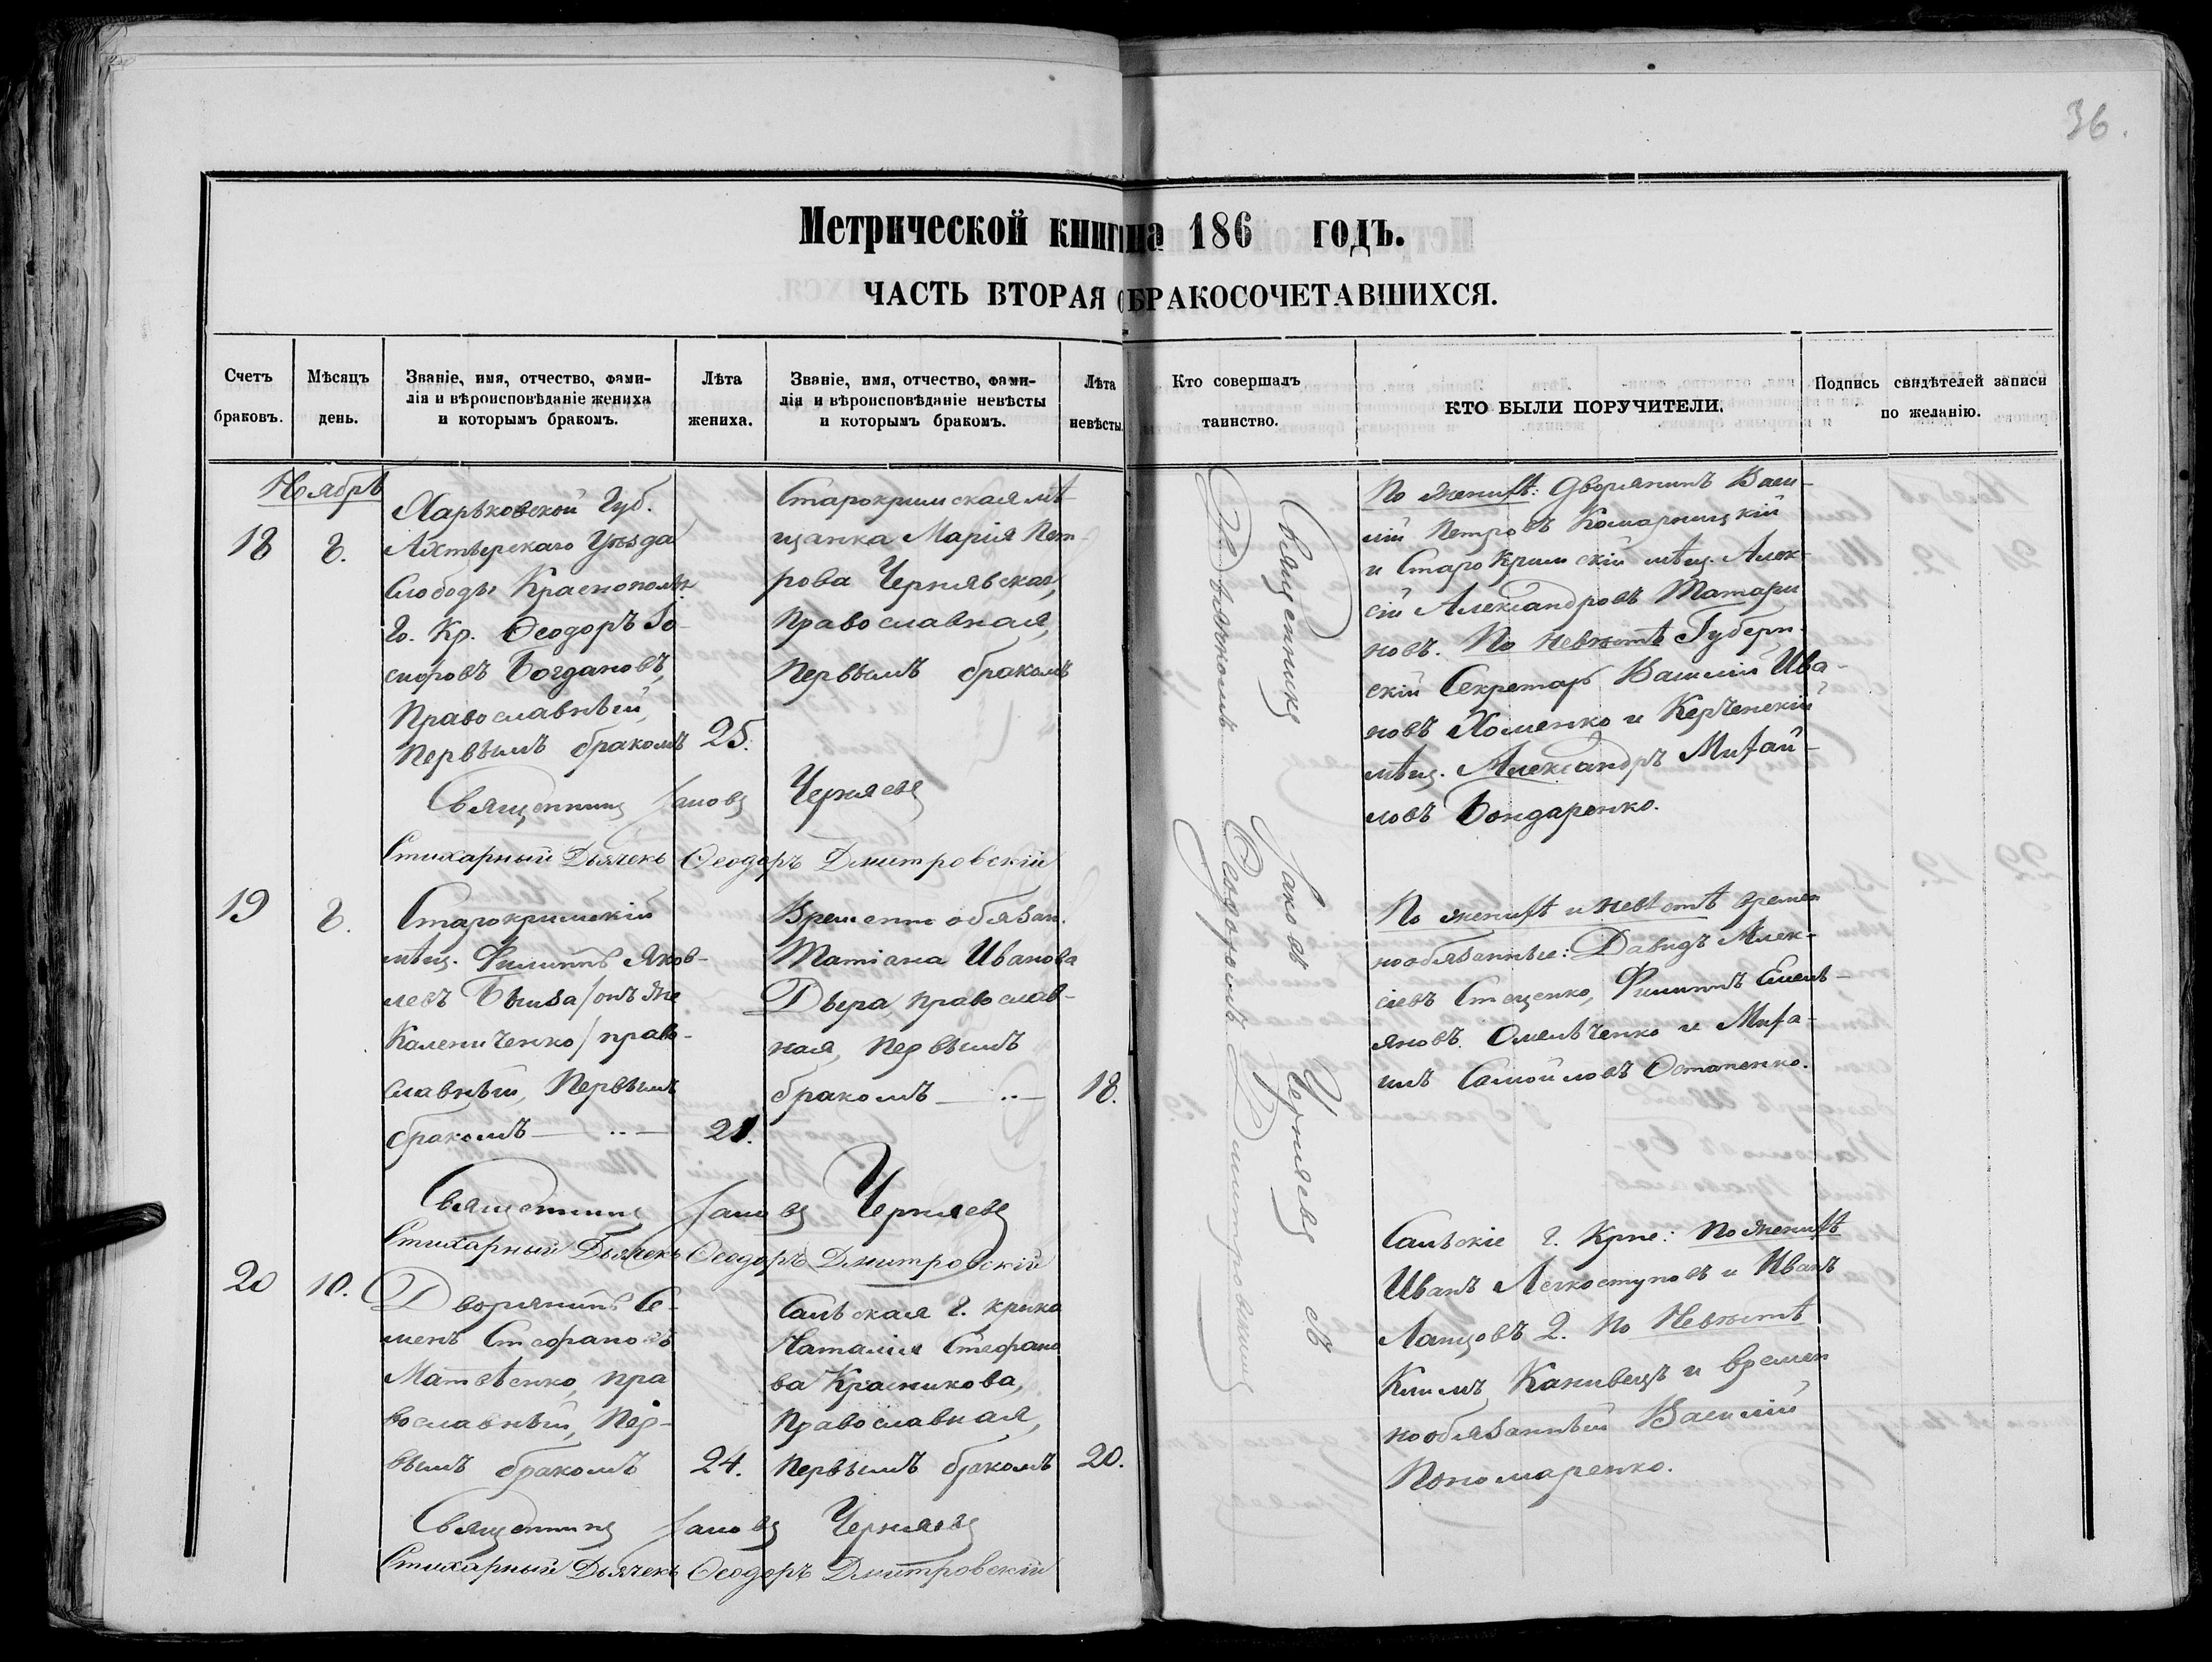 36.
Метрической книги на 186 годъ.
ЧАСТЬ ВТОРАЯ О БРАКОСОЧЕТАВШИХСЯ.
Счетъ
браковъ.
Мѣсяцъ
день.
Званіе, имя, отчество, фами-
лія и вѣроисповѣданіе жениха
и которымъ бракомъ.
Лѣта
жениха.
Званіе, имя, отчество, фами-
лія и вѣроисповѣданіе невѣсты
и которымъ бракомъ.
Лѣта
невѣсты.
Кто совершалъ
таинство.
КТО БЫЛИ ПОРУЧИТЕЛИ.
Подпись свидѣтелей записи
по желанію.
Ноябрь
18
8.
Харьковской Губ.
Ахтырскаго Уѣзда
Слободы Краснополья
Го. Кр. Ѳеодоръ
Богдановъ,
Православный,
Первымъ бракомъ
25.
Старокримская мѣ-
щанка Марія Пет-
рова Чернявская,
Православная,
Первымъ бракомъ
По женихѣ: Дворянинъ Васи-
лій Петровъ Комарницкій
и Старокримскій мѣщ. Алек-
сій Александровъ Татари-
новъ. По невѣстѣ Губерн-
скій Секретарь Василій Ива-
новъ Хоменко и Керченскій
мѣщ. Александръ Михай-
ловъ Бондаренко.
Священникъ Іаковъ Черняевъ
Стихарный Дьячекъ Ѳеодоръ Дмитровскій
19
8.
Старокримскій
мѣщ. Филиппъ Яков-
левъ /онъ же
Калениченко/ право-
славный, Первымъ
бракомъ
21.
Временно обязан.
Татіана Иванова
Двера, православ-
ная, Первымъ
бракомъ
18.
По женихѣ и невѣстѣ времен
нообязанные: Давидъ Алек-
сіевъ Стеценко, Филиппъ Емель-
яновъ Омельченко и Миха-
илъ Самойловъ Остапенко.
Священникъ Іаковъ Черняевъ
Стихарный Дьячекъ Ѳеодоръ Дмитровскій
20
10.
Дворянинъ Се-
менъ Стефановъ
Матвѣенко, пра
вославный, Пер-
вымъ бракомъ
24.
Сальская г. крнка
Наталія Стефано
ва Красникова,
Православная,
Первымъ бракомъ
20.
Сальскіе г. Крне: По женихѣ
Иванъ Легкоступовъ и Иванъ
Лапцовъ 2. По Невѣстѣ
Климъ Канивецъ и времен
нообязанный Василій
Пономаренко.
Священникъ Іаковъ Черняевъ
Стихарный Дьячекъ Ѳеодоръ Дмитровскій
Священникъ Іаковъ Черняевъ съ
Дьячкомъ Ѳеодоромъ Дмитровскимъ